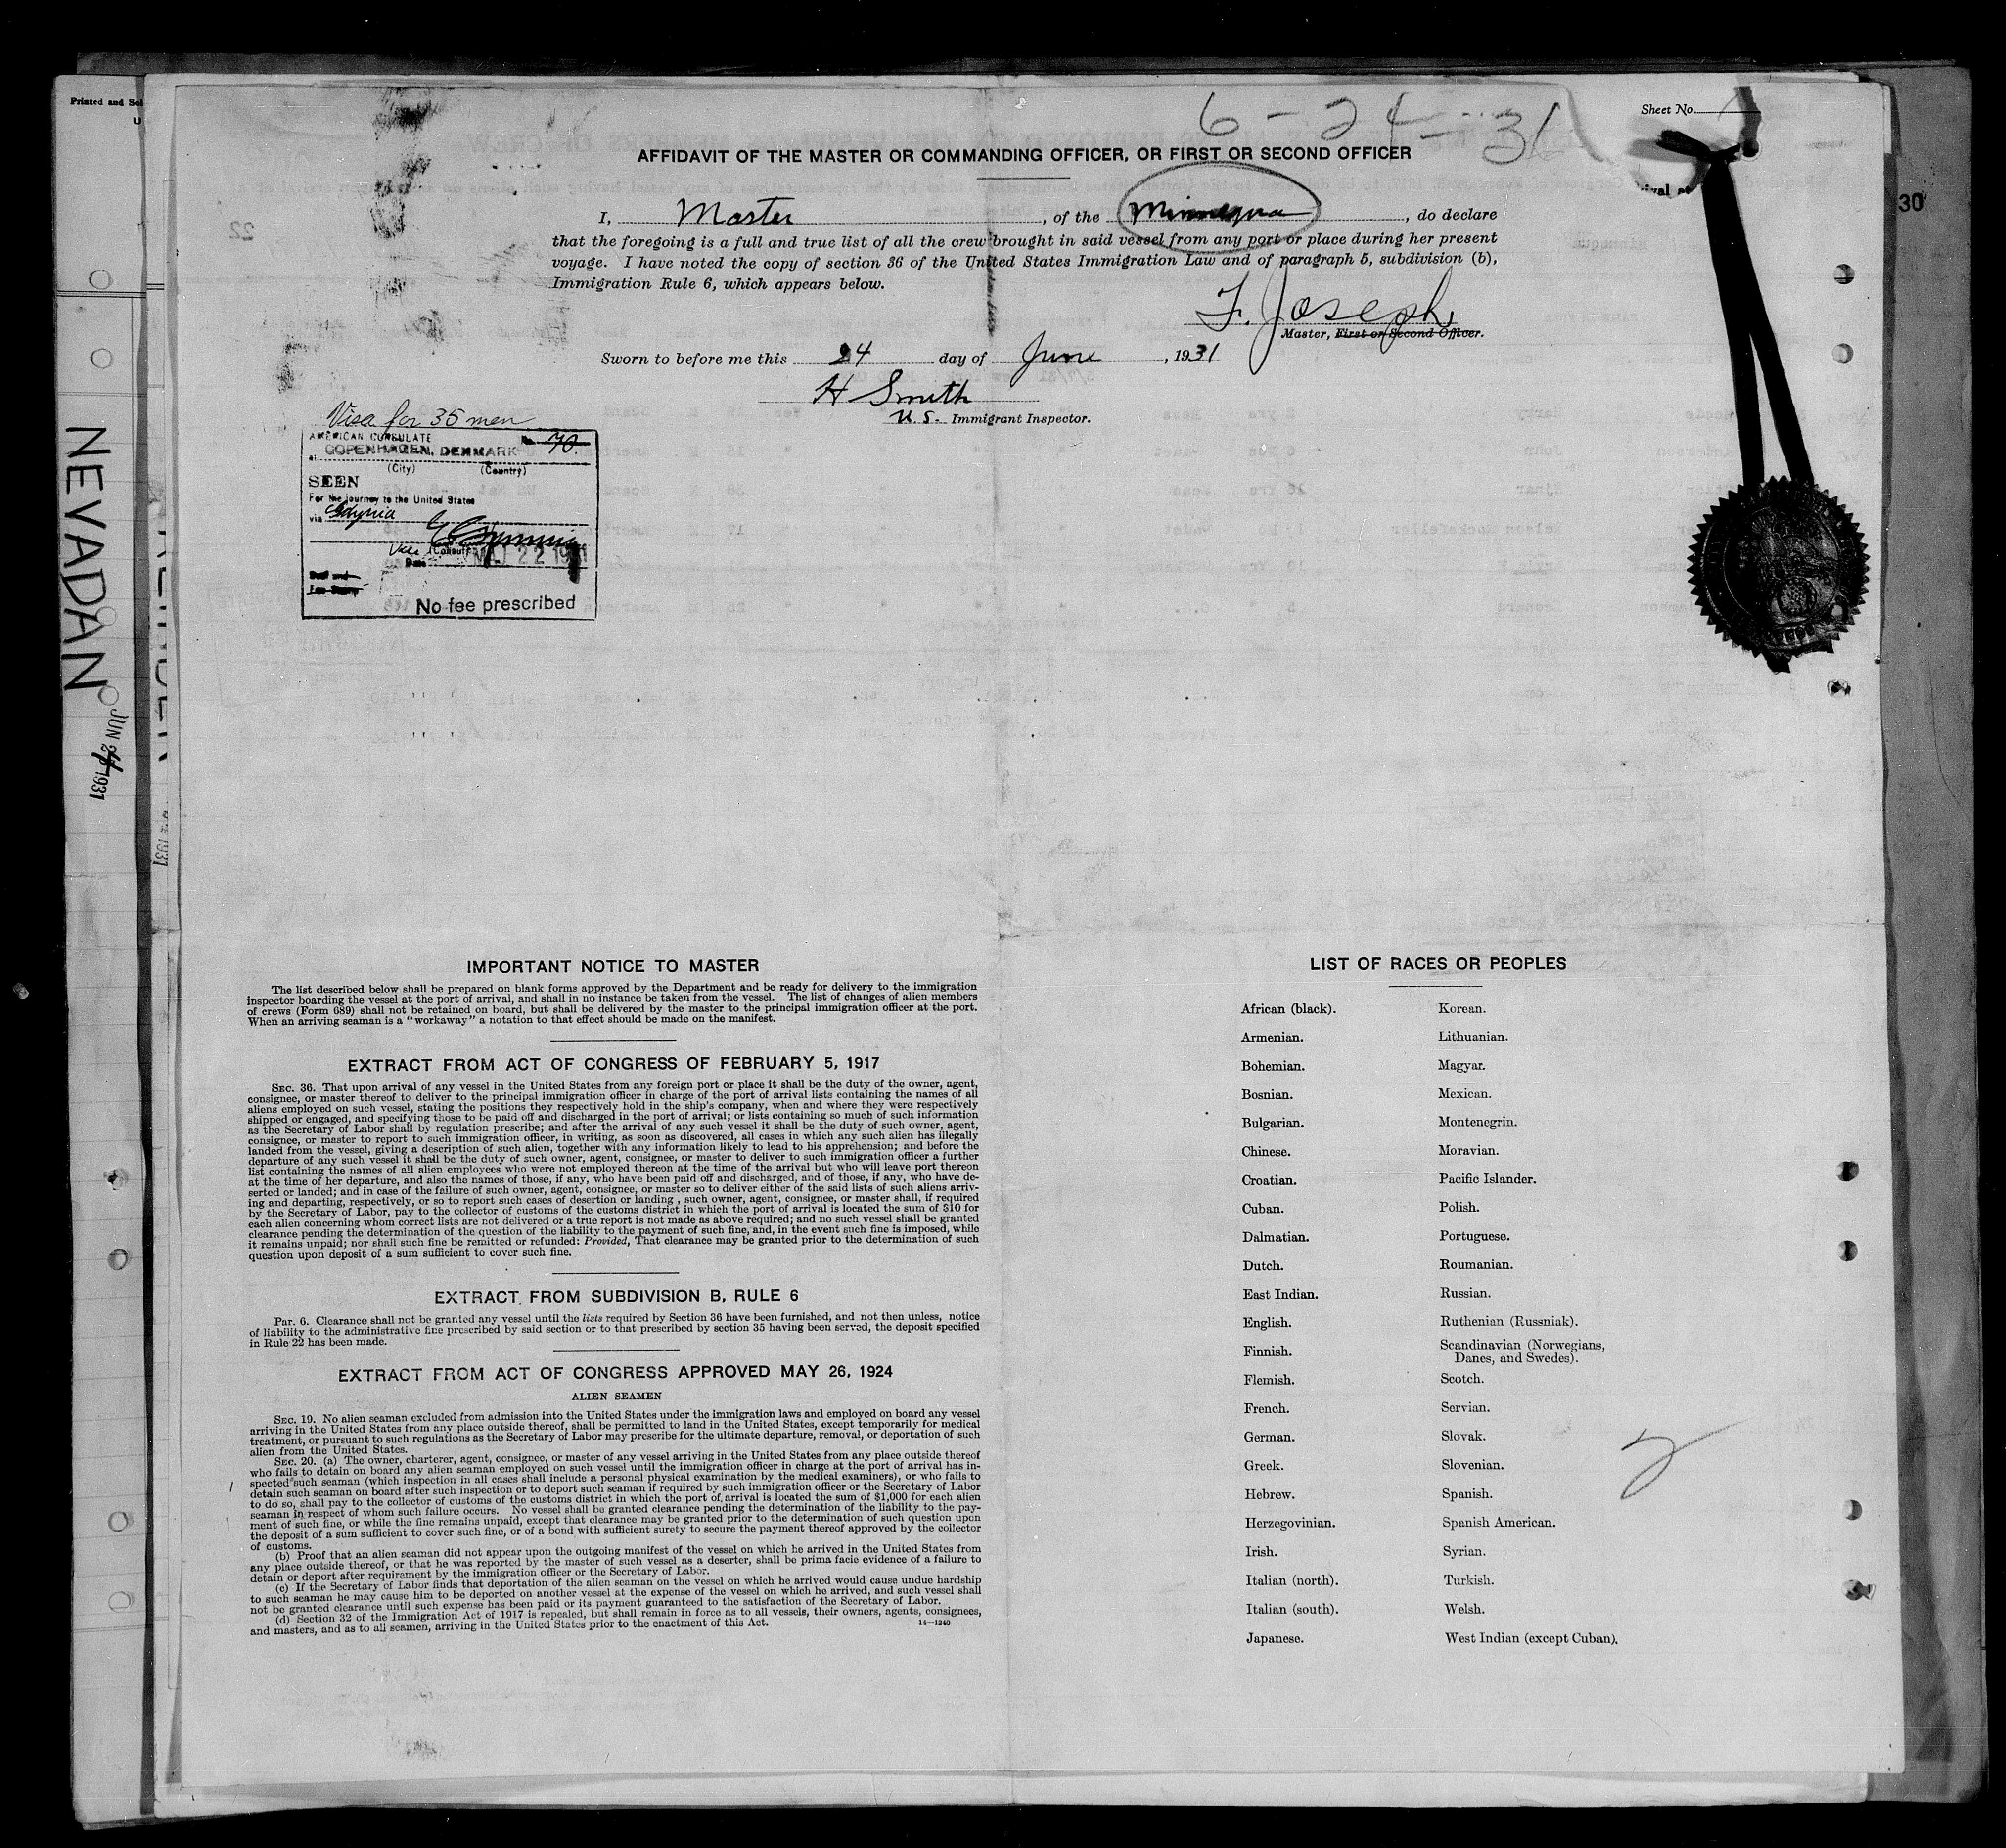 Printed and Sol
U
NEVADAN
JUN 24 1931
1931
30
6-24-31
Sheet No.
ival at
AFFIDAVIT OF THE MASTER OR COMMANDING OFFICER, OR FIRST OR SECOND OFFICER
I, Master, of the Minnequa, do declare
that the foregoing is a full and true list of all the crew brought in said vessel from any port or place during her present
voyage. I have noted the copy of section 36 of the United States Immigration Law and of paragraph 5, subdivision (b),
Immigration Rule 6, which appears below.
F. Joseph
Master, First or Second Officer.
Sworn to before me this 24 day of June, 1931
H Smith
U.S. Immigrant Inspector.
Visa for 35 men
AMERICAN CONSULATE No. 70.
at COPENHAGEN, DENMARK
(City) (Country)
SEEN
For the journey to the United States
via Gdynia
Vice (Consul)
Date MAY 22 1931
No fee prescribed
IMPORTANT NOTICE TO MASTER
The list described below shall be prepared on blank forms approved by the Department and be ready for delivery to the immigration
inspector boarding the vessel at the port of arrival, and shall in no instance be taken from the vessel. The list of changes of alien members
of crews (Form 689) shall not be retained on board, but shall be delivered by the master to the principal immigration officer at the port.
When an arriving seaman is a "workaway" a notation to that effect should be made on the manifest.
EXTRACT FROM ACT OF CONGRESS OF FEBRUARY 5, 1917
SEC. 36. That upon arrival of any vessel in the United States from any foreign port or place it shall be the duty of the owner, agent,
consignee, or master thereof to deliver to the principal immigration officer in charge of the port of arrival lists containing the names of all
aliens employed on such vessel, stating the positions they respectively hold in the ship's company, when and where they were respectively
shipped or engaged, and specifying those to be paid off and discharged in the port of arrival; or lists containing so much of such information
as the Secretary of Labor shall by regulation prescribe; and after the arrival of any such vessel it shall be the duty of such owner, agent,
consignee, or master to report to such immigration officer, in writing, as soon as discovered, all cases in which any such alien has illegally
landed from the vessel, giving a description of such alien, together with any information likely to lead to his apprehension; and before the
departure of any such vessel it shall be the duty of such owner, agent, consignee, or master to deliver to such immigration officer a further
list containing the names of all alien employees who were not employed thereon at the time of the arrival but who will leave port thereon
at the time of her departure, and also the names of those, if any, who have been paid off and discharged, and of those, if any, who have de-
serted or landed; and in case of the failure of such owner, agent, consignee, or master so to deliver either of the said lists of such aliens arriv-
ing and departing, respectively, or so to report such cases of desertion or landing , such owner, agent, consignee, or master shall, if required
by the Secretary of Labor, pay to the collector of customs of the customs district in which the port of arrival is located the sum of $10 for
each alien concerning whom correct lists are not delivered or a true report is not made as above required; and no such vessel shall be granted
clearance pending the determination of the question of the liability to the payment of such fine, and, in the event such fine is imposed, while
it remains unpaid; nor shall such fine be remitted or refunded: Provided, That clearance may be granted prior to the determination of such
question upon deposit of a sum sufficient to cover such fine.
EXTRACT FROM SUBDIVISION B, RULE 6
Par. 6. Clearance shall not be granted any vessel until the lists required by Section 36 have been furnished, and not then unless, notice
of liability to the administrative fine prescribed by said section or to that prescribed by section 35 having been served, the deposit specified
in Rule 22 has been made.
EXTRACT FROM ACT OF CONGRESS APPROVED MAY 26, 1924
ALIEN SEAMEN
SEC. 19. No alien seaman excluded from admission into the United States under the immigration laws and employed on board any vessel
arriving in the United States from any place outside thereof, shall be permitted to land in the United States, except temporarily for medical
treatment, or pursuant to such regulations as the Secretary of Labor may prescribe for the ultimate departure, removal, or deportation of such
alien from the United States.
SEC. 20. (a) The owner, charterer, agent, consignee, or master of any vessel arriving in the United States from any place outside thereof
who fails to detain on board any alien seaman employed on such vessel until the immigration officer in charge at the port of arrival has in-
spected such seaman (which inspection in all cases shall include a personal physical examination by the medical examiners), or who fails to
detain such seaman on board after such inspection or to deport such seaman if required by such immigration officer or the Secretary of Labor
to do so, shall pay to the collector of customs of the customs district in which the port of arrival is located the sum of $1,000 for each alien
seaman in respect of whom such failure occurs. No vessel shall be granted clearance pending the determination of the liability to the pay-
ment of such fine, or while the fine remains unpaid, except that clearance may be granted prior to the determination of such question upon
the deposit of a sum sufficient to cover such fine, or of a bond with sufficient surety to secure the payment thereof approved by the collector
of customs.
(b) Proof that an alien seaman did not appear upon the outgoing manifest of the vessel on which he arrived in the United States from
any place outside thereof, or that he was reported by the master of such vessel as a deserter, shall be prima facie evidence of a failure to
detain or deport after requirement by the immigration officer or the Secretary of Labor.
(c) If the Secretary of Labor finds that deportation of the alien seaman on the vessel on which he arrived would cause undue hardship
to such seaman he may cause him to be deported on another vessel at the expense of the vessel on which he arrived, and such vessel shall
not be granted clearance until such expense has been paid or its payment guaranteed to the satisfaction of the Secretary of Labor.
(d) Section 32 of the Immigration Act of 1917 is repealed, but shall remain in force as to all vessels, their owners, agents, consignees,
and masters, and as to all seamen, arriving in the United States prior to the enactment of this Act.
14—1240
LIST OF RACES OR PEOPLES
African (black).
Armenian.
Bohemian.
Bosnian.
Bulgarian.
Chinese.
Croatian.
Cuban.
Dalmatian.
Dutch.
East Indian.
English.
Finnish.
Flemish.
French.
German.
Greek.
Hebrew.
Herzegovinian.
Irish.
Italian (north).
Italian (south).
Japanese.
Korean.
Lithuanian.
Magyar.
Mexican.
Montenegrin.
Moravian.
Pacific Islander.
Polish.
Portuguese.
Roumanian.
Russian.
Ruthenian (Russniak).
Scandinavian (Norwegians,
Danes, and Swedes).
Scotch.
Servian.
Slovak.
Slovenian.
Spanish.
Spanish American.
Syrian.
Turkish.
Welsh.
West Indian (except Cuban).
2